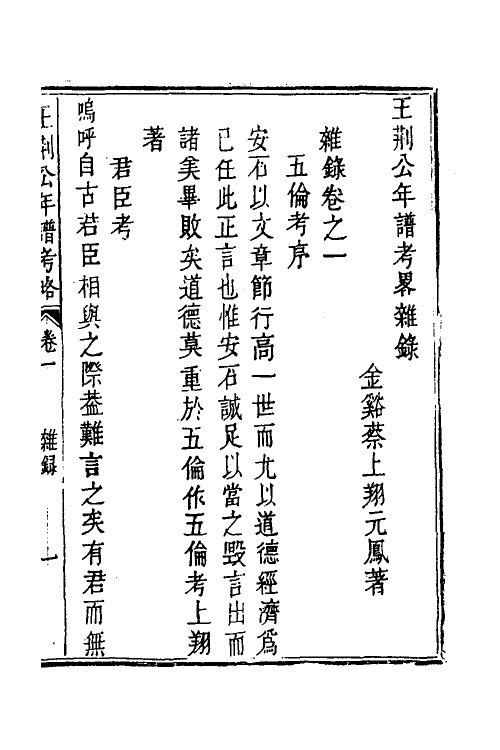 王荆公年譜考畧雜錄
金谿蔡上翔元鳳著
雜錄卷之一
五倫考序
安石以文章節行高一世而尤以道德經濟爲
己任此正言也惟安石誠足以當之毀言出而
諸美畢敗矣道德莫重於五倫作五倫考上翔
著
君臣考
嗚呼自古君臣相與之際葢難言之矣有君而無
王荆公年譜考略 卷一 雜録 一